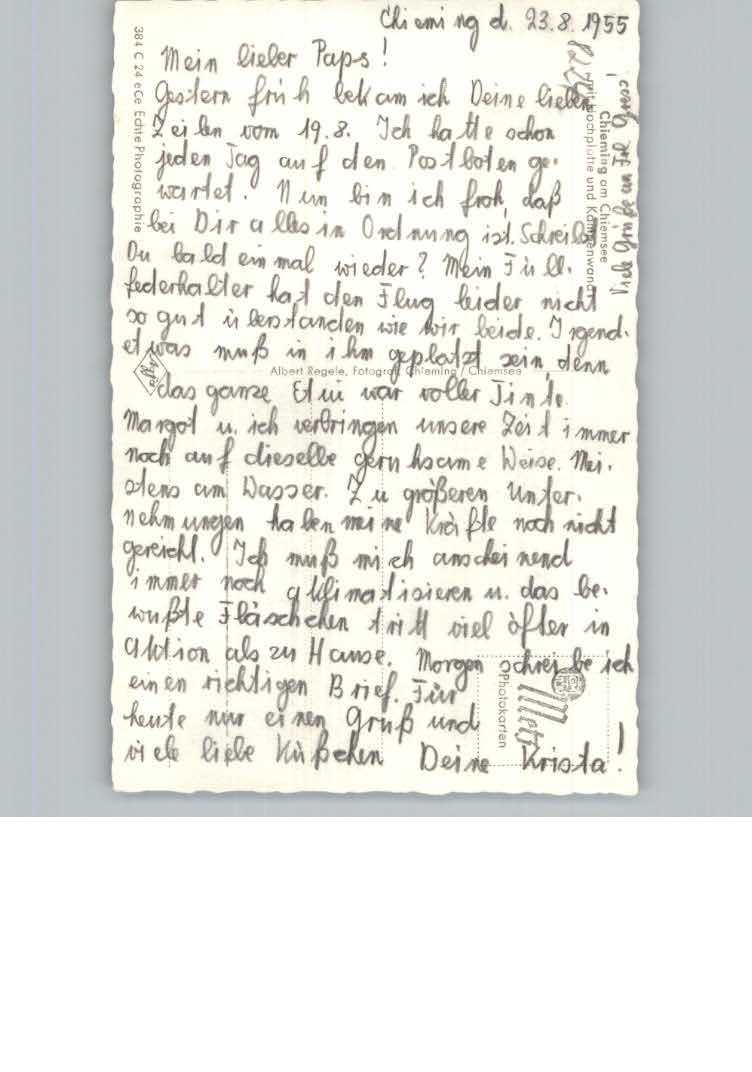 Chieming d. 23.8.1955
Mein lieber Paps!
Gestern früh bekam ich Deine lieben
Zeilen vom 19.8. Ich hatte schon
jeden Tag auf den Postboten ge-
wartet. Nun bin ich froh, daß
bei Dir alles in Ordnung ist. Schreibst
Du bald einmal wieder? Mein Füll-
federhalter hat den Flug leider nicht
so gut überstanden wie wir beide. Irgend-
etwas muß in ihm geplatzt sein denn
das ganze Etui war voller Tinte.
Margot u. ich verbringen unsere Zeit immer
noch auf dieselbe geruhsame Weise. Mei-
stens am Wasser. Zu größeren Unter-
nehmungen haben meine Kräfte noch nicht
gereicht. Ich muß mich anscheinend
immer noch aklimatisieren u. das be-
wußte Fläschchen tritt viel öfter in
Aktion als zu Hause. Morgen schreibe ich
einen richtigen Brief. Für
heute nur einen Gruß und
viele liebe Küßchen Deine Krista!
Chieming am Chiemsee
mit Hochplatte und Kampenwand
384 C 24 eCe Echte Photographie
Agfa
Albert Regele, Fotograf, Chieming / Chiemsee
Metz
Photokarten